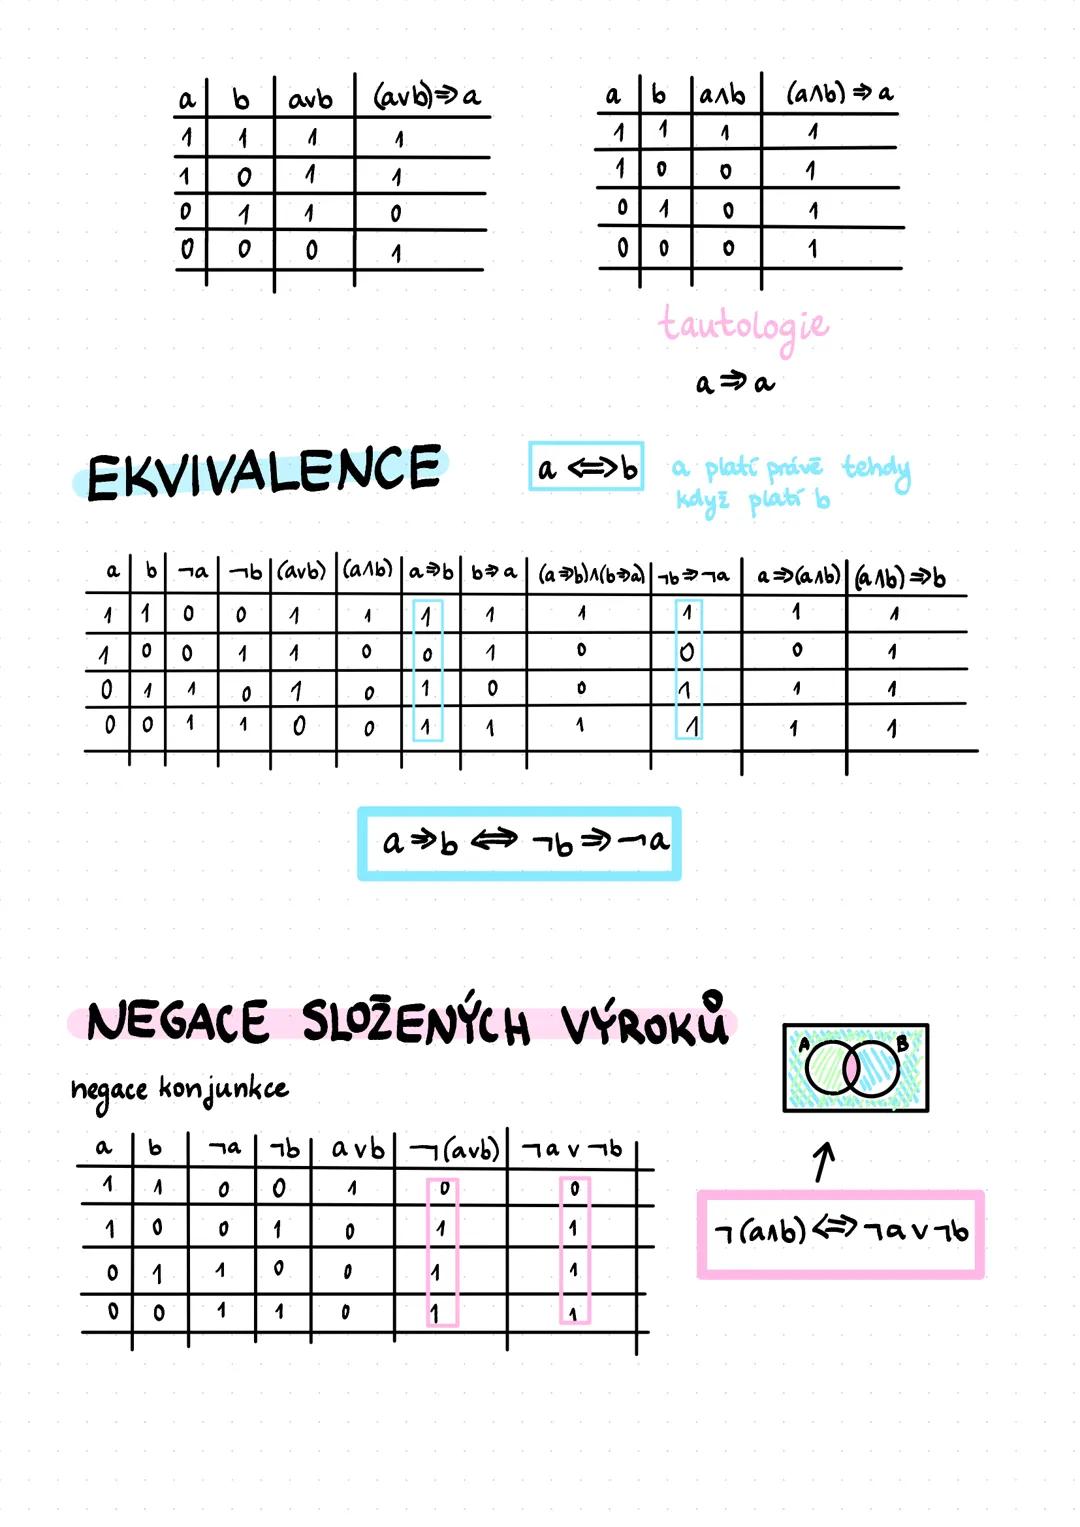 a b a∨b (a∨b)⇒a
1 1 1 1
1 0 1 1
0 1 1 0
0 0 0 1
a b a∧b (a∧b)⇒a
1 1 1 1
1 0 0 1
0 1 0 1
0 0 0 1
tautologie
a⇒a
EKVIVALENCE
a⇔b
a platí právě tehdy
když platí b
a b ¬a ¬b (a∨b) (a∧b) a⇒b b⇒a (a⇒b)∧(b⇒a) ¬b⇒¬a a⇒(a∧b) (a∧b)⇒b
1 1 0 0 1 1 1 1 1 1 1 1
1 0 0 1 1 0 0 1 0 0 0 1
0 1 1 0 1 0 1 0 0 1 1 1
0 0 1 1 0 0 1 1 1 1 1 1
a⇒b ⇔ ¬b⇒¬a
NEGACE SLOŽENÝCH VÝROKŮ
negace konjunkce
a b ¬a ¬b a∨b ¬(a∨b) ¬a∨¬b
1 1 0 0 1 0 0
1 0 0 1 0 1 1
0 1 1 0 0 1 1
0 0 1 1 0 1 1
A B
¬(a∧b)⇔¬a∨¬b